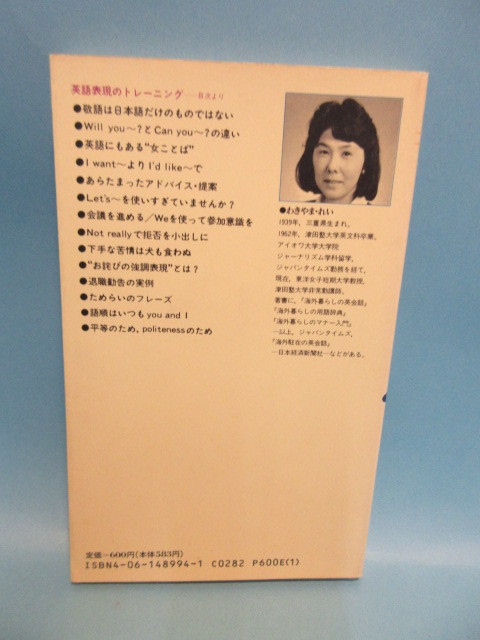 英語表現のトレーニング──目次より
●敬語は日本語だけのものではない
●Will you〜?とCan you〜?の違い
●英語にもある“女ことば”
●I want〜よりI'd like〜で
●あらたまったアドバイス・提案
●Let's〜を使いすぎていませんか?
●会議を進める／Weを使って参加意識を
●Not reallyで拒否を小出しに
●下手な苦情は犬も食わぬ
●“お詫びの強調表現”とは?
●退職勧告の実例
●ためらいのフレーズ
●語順はいつもyou and I
●平等のため, politenessのため
●わきやま・れい
1939年, 三重県生まれ。
1962年, 津田塾大学英文科卒業。
アイオワ大学大学院
ジャーナリズム学科留学。
ジャパンタイムズ勤務を経て,
現在, 東洋女子短期大学教授,
津田塾大学非常勤講師。
著書に,『海外暮らしの英会話』
『海外暮らしの用語辞典』
『海外暮らしのマナー入門』
─以上, ジャパンタイムズ,
『海外駐在の英会話』
─日本経済新聞社─などがある。
定価─600円(本体583円)
ISBN4-06-148994-1 C0282 P600E(1)